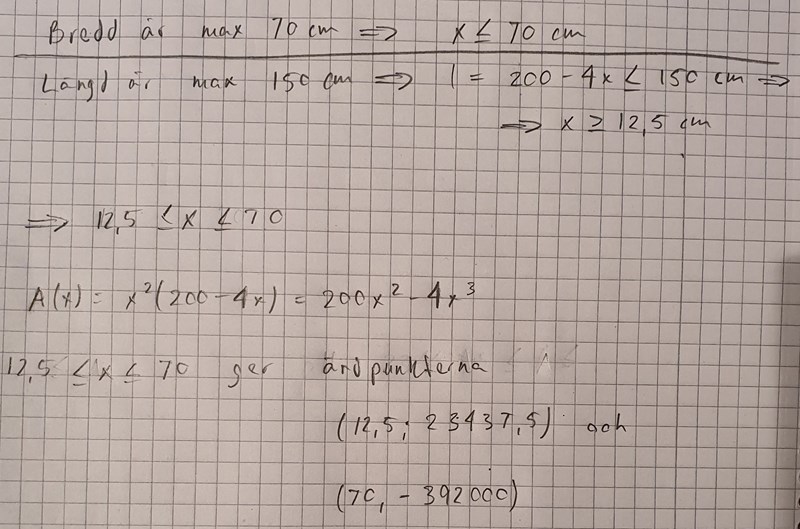 Bredd är max 70 cm ⇒ x ≤ 70 cm
Längd är max 150 cm ⇒ l = 200 - 4x ≤ 150 cm ⇒
⇒ x ≥ 12,5 cm
⇒ 12,5 ≤ x ≤ 70
A(x) = x²(200-4x) = 200x² - 4x³
12,5 ≤ x ≤ 70 ger ändpunkterna
(12,5; 23437,5) och
(70, -392000)